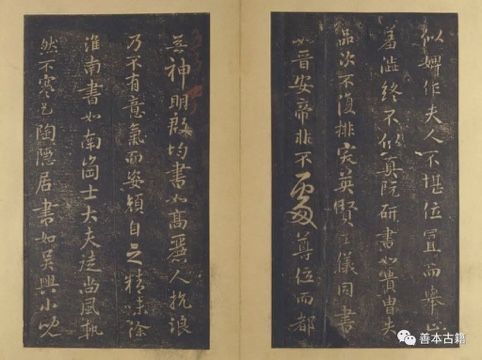 似婢作夫人不堪位置而舉止
羞澀終不似真阮研書如貴胄失
品次不復排突英賢王儀同書
如晉安帝非不處尊位而都
無神明殷均書如高麗人抗浪
乃不有意氣而姿顏自乏精味徐
淮南書如南崗士大夫徒尚風軌
然不寒乞陶隱居書如吳興小兒
善本古籍